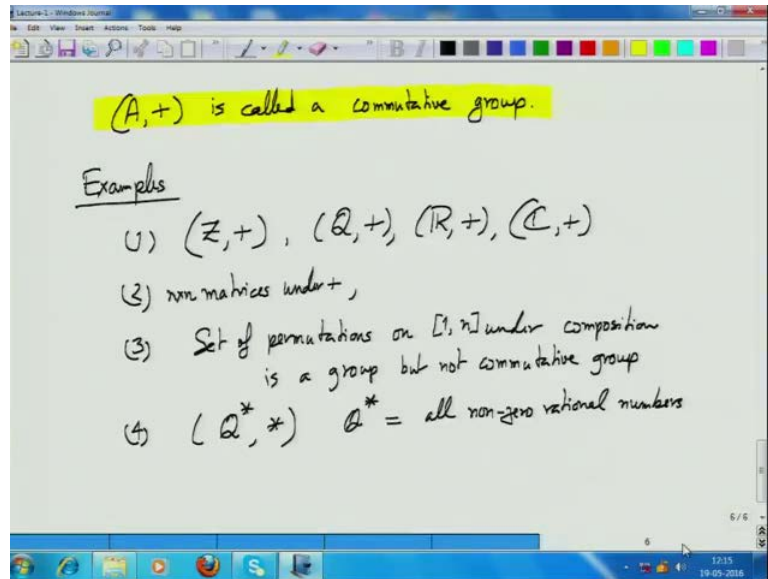 Lecture-1 - Windows Journal
Edit View Insert Actions Tools Help
(A,+) is called a commutative group.
Examples
(1) (ℤ,+), (ℚ,+), (ℝ,+), (ℂ,+)
(2) n×n matrices under +,
(3) Set of permutations on [1,n] under composition
is a group but not commutative group
(4) (ℚ*, *) ℚ* = all non-zero rational numbers
6/6
6
12:15
19-05-2016